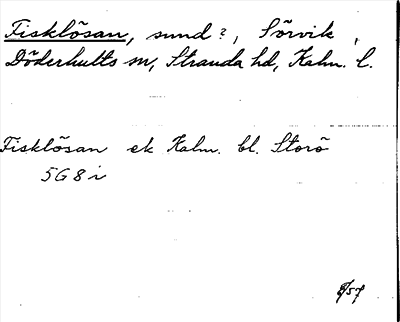 Fisklösan, sund?, Sörvik,
Döderhults sn, Stranda hd, Kalm. l.
Fisklösan ek Kalm. bl. Storö
5G8i